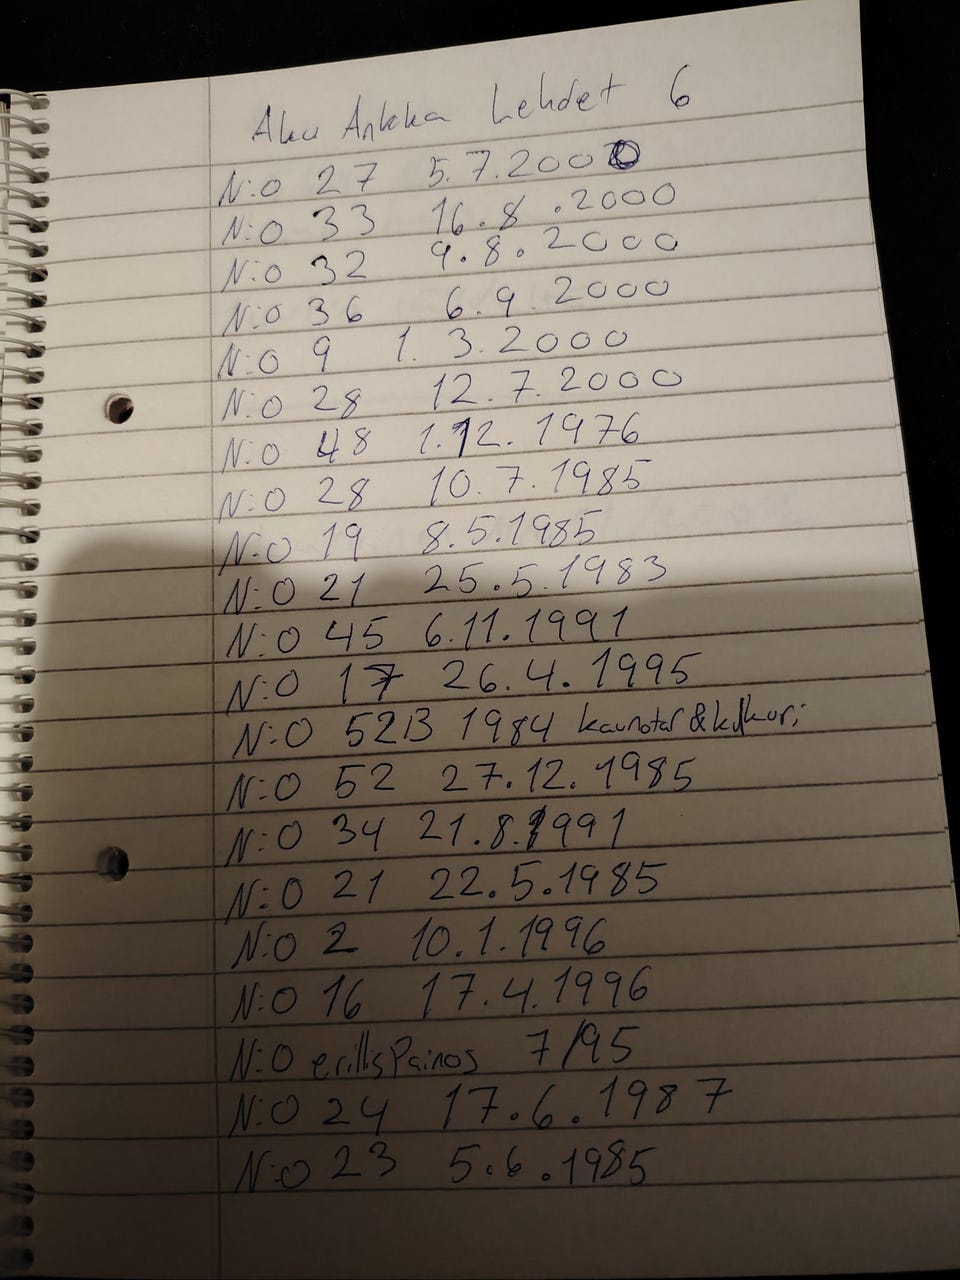 Aku Ankka Lehdet 6
N:o 27 5.7.2000
N:o 33 16.8.2000
N:o 32 9.8.2000
N:o 36 6.9.2000
N:o 9 1.3.2000
N:o 28 12.7.2000
N:o 48 1.12.1976
N:o 28 10.7.1985
N:o 19 8.5.1985
N:O 21 25.5.1983
N:O 45 6.11.1991
N:O 17 26.4.1995
N:O 52B 1984 kaunotar & kulkuri
N:O 52 27.12.1985
N:O 34 21.8.1991
N:O 21 22.5.1985
N:O 2 10.1.1996
N:O 16 17.4.1996
N:O erillisPainos 7/95
N:O 24 17.6.1987
N:O 23 5.6.1985